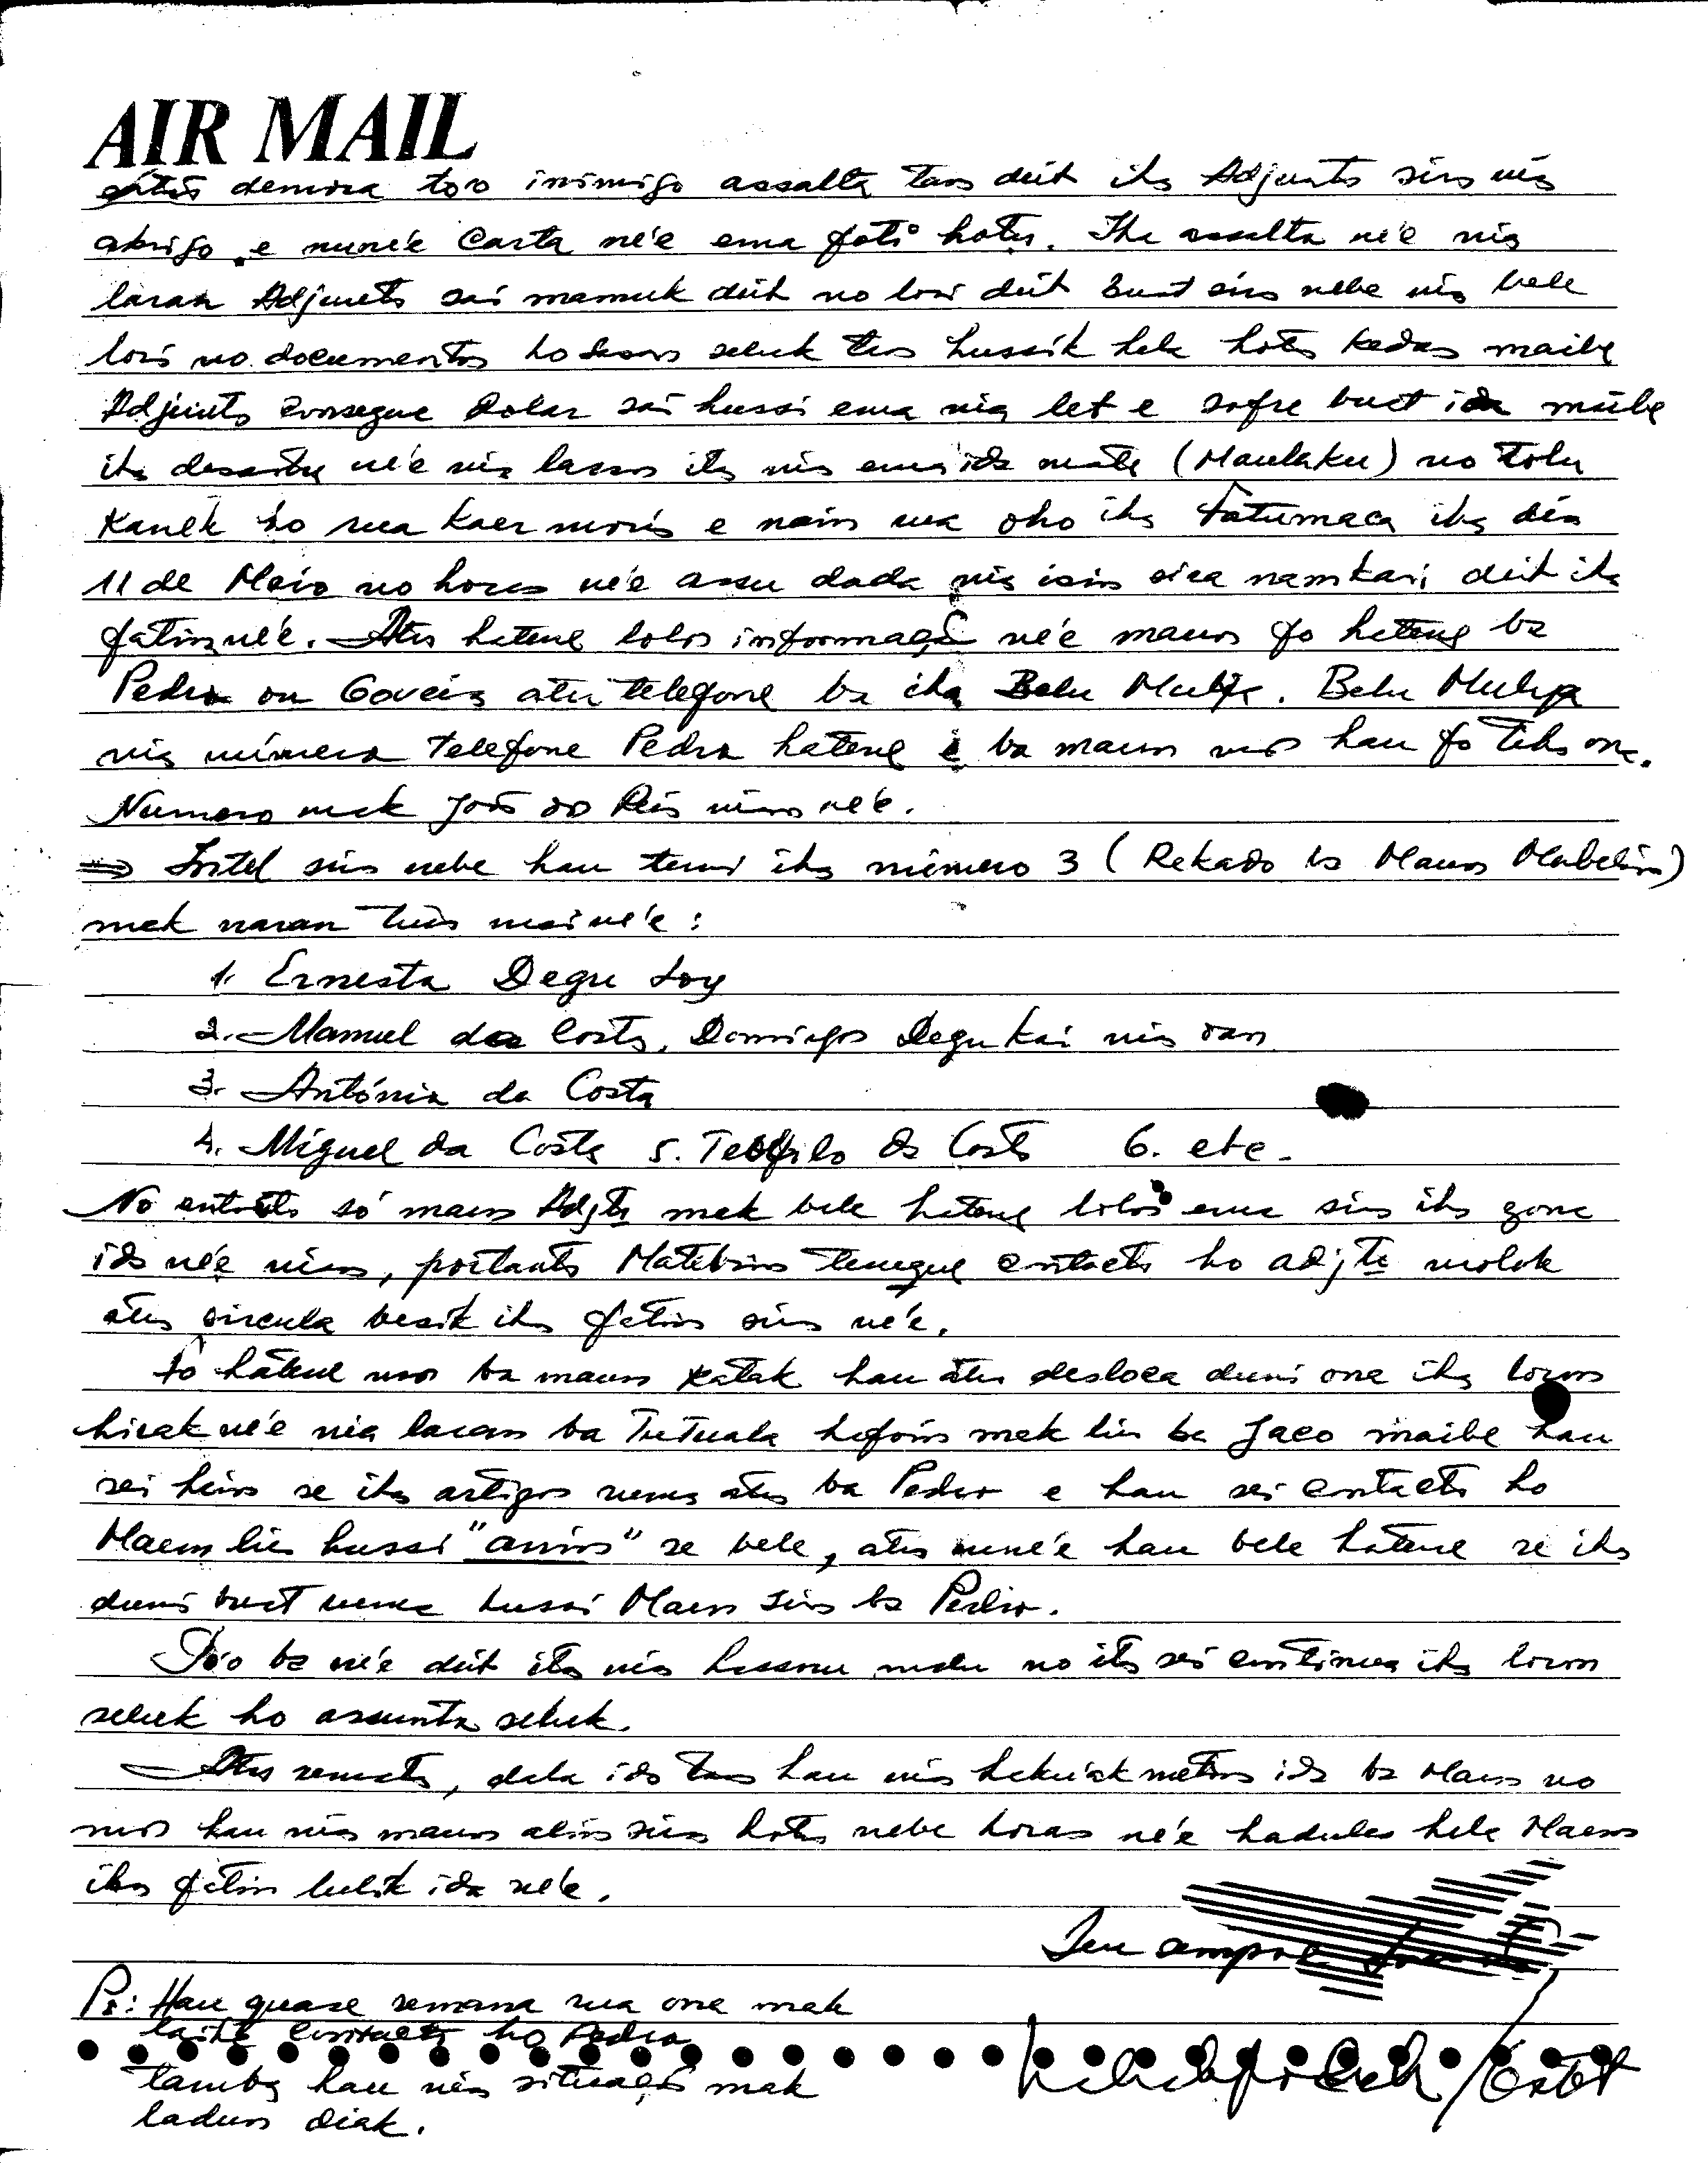 AIR MAIL
demora too inimigo assalta tan deit iha Adjunto sira nia
abrigo e nune'e Carta ne'e ema foti hotu. Iha assalta ne'e nia
laran Adjunto sai mamuk deit no lori deit buat sira nebe nia bele
lori no documentos ho seluk tan hussik hela hotu kedas maibe
Adjunto consegue dolar sai hussi ema nia let e sofre buat ida maibe
iha ne'e nia laran ita nia ema ida mate (Maulaku) no tolu
Kanek ho rua kaer moris e nain rua oho iha Fatumaca iha dia
11 de Maio no horas ne'e assu dada nia isin sira namkari deit iha
fatin ne'e. Atu hatene lolos informação ne'e maun fo hatene ba
Pedro ou Goveia atu telefone ba iha Belu Mulia. Belu Mulia
nia número telefone Pedro hatene e ba maun mos hau fo tiha ona.
Numero mak João do Reis nian ne'e.
⇒ Intel sira nebe hau temi iha número 3 (Rekado ba Maun Mabelin)
mak naran tuir mai ne'e:
1. Ernesta Degu Loy
2. Manuel da Costa, Domingos Degu Kai nia oan
3. António da Costa
4. Miguel da Costa 5. Teofilo da Costa 6. etc.
No entanto só maun Adjto mak bele hatene lolos ema sira iha zona
ida ne'e nian, portanto Matebian tenque contacto ho adjto molok
atu circula besik iha fatin sira ne'e.
Fo hatene mos ba maun katak hau atu desloca duni ona iha loron
hirak ne'e nia laran ba Tutuala hafoin mak liu ba Jaco maibe hau
sei hein se iha artigos ruma atu ba Pedro e hau sei contacto ho
Maun liu hussi "anin" se bele, atu nune'e hau bele hatene se iha
duni buat ruma hussi Maun sira ba Pedro.
To'o ba ne'e deit ita nia hassoru malu no ita sei continua iha loron
seluk ho assunto seluk.
Atu remata, dala ida tan hau nia hakuak metin ida ba Maun no
mos hau nia maun alin sira hotu nebe horas ne'e hadulas hela Maun
iha fatin lulik ida ne'e.
Seu sempre
Ps: Hau quase semana rua ona mak
laiha contacto ho Pedro
tamba hau nia situação mak
ladun diak.